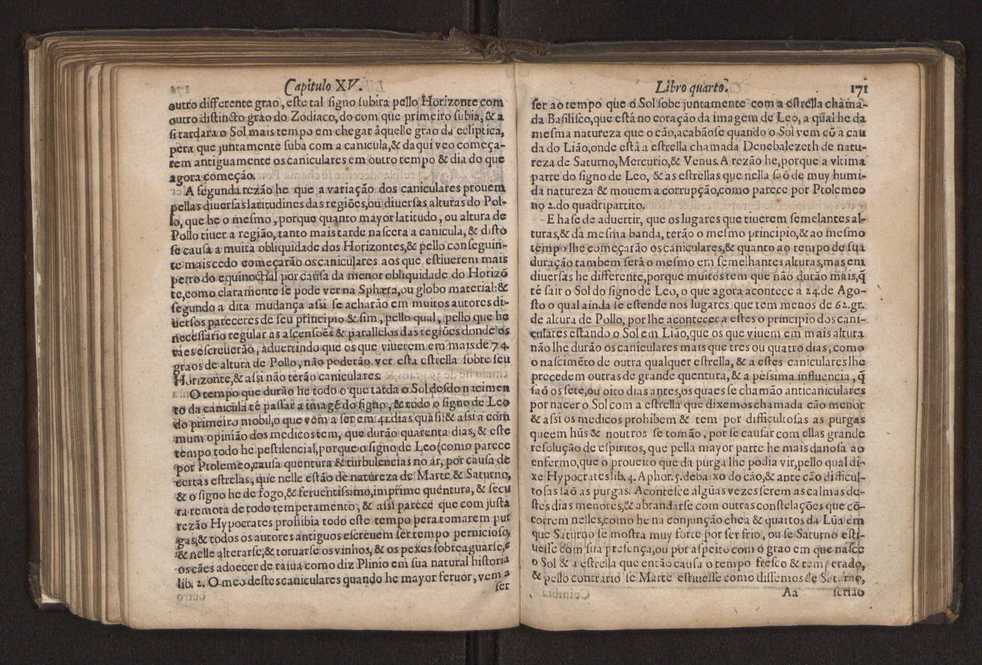 Capitulo XV.
outro differente grao, este tal signo subira pello Horizonte com
outro distincto grao do Zodiaco, do com que primeiro subia, & a
si tardara o Sol mais tempo em chegar âquelle grao da ecliptica,
pera que juntamente suba com a canicula, & daqui veo começa-
rem antiguamente os caniculares em outro tempo & dia do que
agora começão.
A segunda rezão he que a variação dos caniculares prouem
pellas diuersas latitudines das regiões, ou diuersas alturas do Pol-
lo, que he o mesmo, porque quanto mayor latitudo, ou altura de
Pollo tiuer a região, tanto mais tarde nascera a canicula, & disto
se causa a muita obliquidade dos Horizontes, & pello conseguin-
te mais cedo começarão os caniculares aos que estiuerem mais
perto do equinoctial por causa da menor obliquidade do Horizõ
te, como claramente se pode ver na Sphæra, ou globo material: &
segundo a dita mudança assi se acharão em muitos autores di-
uersos pareceres de seu principio & fim, pello qual, pello que he
necessario regular as ascensões & parallelos das regiões donde os
taes escreuerão, aduertindo que os que viuerem em mais de 74.
graos de altura de Pollo, não poderão ver esta estrella sobre seu
Horizonte, & assi não terão caniculares.
O tempo que durão he todo o que tarda o Sol desdo nacimen
to da canicula té passar a imagẽ do signo, & todo o signo de Leo
do primeiro mobil, o que vem a ser em 41. dias quasi: & assi a com
mum opinião dos medicos tem, que durão quarenta dias, & este
tempo todo he pestilencial, porque o signo de Leo (como parece
por Ptolemeo, causa quentura & turbulencias no ár, por causa de
certas estrellas, que nelle estão de natureza de Marte & Saturno,
& o signo he de fogo, & feruentissimo, imprime quentura, & secu
ra remota de todo temperamento, & assi parece que com justa
rezão Hypocrates prohibia todo este tempo pera tomarem pur
gas, & todos os autores antiguos escreuem ser tempo pernicioso,
& nelle alterarse, & toruarse os vinhos, & os pexes sobreaguarse, &
os cães adoecer de raiua como diz Plinio em sua natural historia
lib. 2. O meo destes caniculares quando he mayor feruor, vem a
ser
Libro quarto.
171
ser ao tempo que o Sol sobe juntamente com a estrella chama-
da Basilisco, que está no coração da imagem de Leo, a qual he da
mesma natureza que o cão, acabãose quando o Sol vem cõ a cau
da do Lião, onde está a estrella chamada Denebalezeth de natu-
reza de Saturno, Mercurio, & Venus. A rezão he, porque a vltima
parte do signo de Leo, & as estrellas que nella saõ de muy humi-
da natureza & mouem a corrupção, como parece por Ptolemeo
no 2. do quadripartito.
E hase de aduertir, que os lugares que tiuerem semelantes al-
turas, & da mesma banda, terão o mesmo principio, & ao mesmo
tempo lhe começarão os caniculares, & quanto ao tempo de sua
duração tambem será o mesmo em semelhantes alturas, mas em
diuersas he differente, porque muitos tem que não durão mais, q̃
té sair o Sol do signo de Leo, o que agora acontece a 24. de Ago-
sto o qual ainda se estende nos lugares que tem menos de 62. gr.
de altura de Pollo, por lhe acontecer a estes o principio dos cani-
culares estando o Sol em Lião, que os que viuem em mais altura
não lhe durão os caniculares mais que tres ou quatro dias, como
o nascimẽto de outra qualquer estrella, & a estes caniculares lhe
precedem outras de grande quentura, & a pessima influencia, q̃
saõ os sete, ou oito dias antes, os quaes se chamão anticaniculares
por nacer o Sol com a estrella que dixemos chamada cão menor
& assi os medicos prohibem & tem por difficultosas as purgas
queem hũs & noutros se tomão, por se causar com ellas grande
resolução de espiritos, que pella mayor parte he mais danosa ao
enfermo, que o proueito que da purga lhe podia vir, pello qual di-
xe Hypocrates lib. 4. Aphor. 5. debaixo do cão, & ante cão difficul-
tosas saõ as purgas. Acontesce algũas vezes serem as calmas de-
stes dias menores, & abrandarse com outras constelações que cõ-
correm nelles, como he na conjunção chea & quartos da Lũa em
que Saturno se mostra muy forte por ser frio, ou se Saturno esti-
uesse com sua presença, ou por aspeito com o grao em que nasce
o Sol & a estrella que então causa o tempo fresco & temperado,
& pello contrario se Marte estiuesse como dissemos de Saturno,
Aa serião